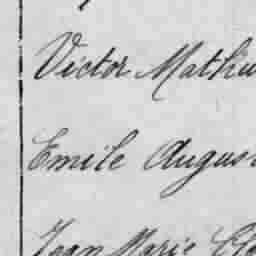 Victor Mathu
Emile Augus
Jean Marie